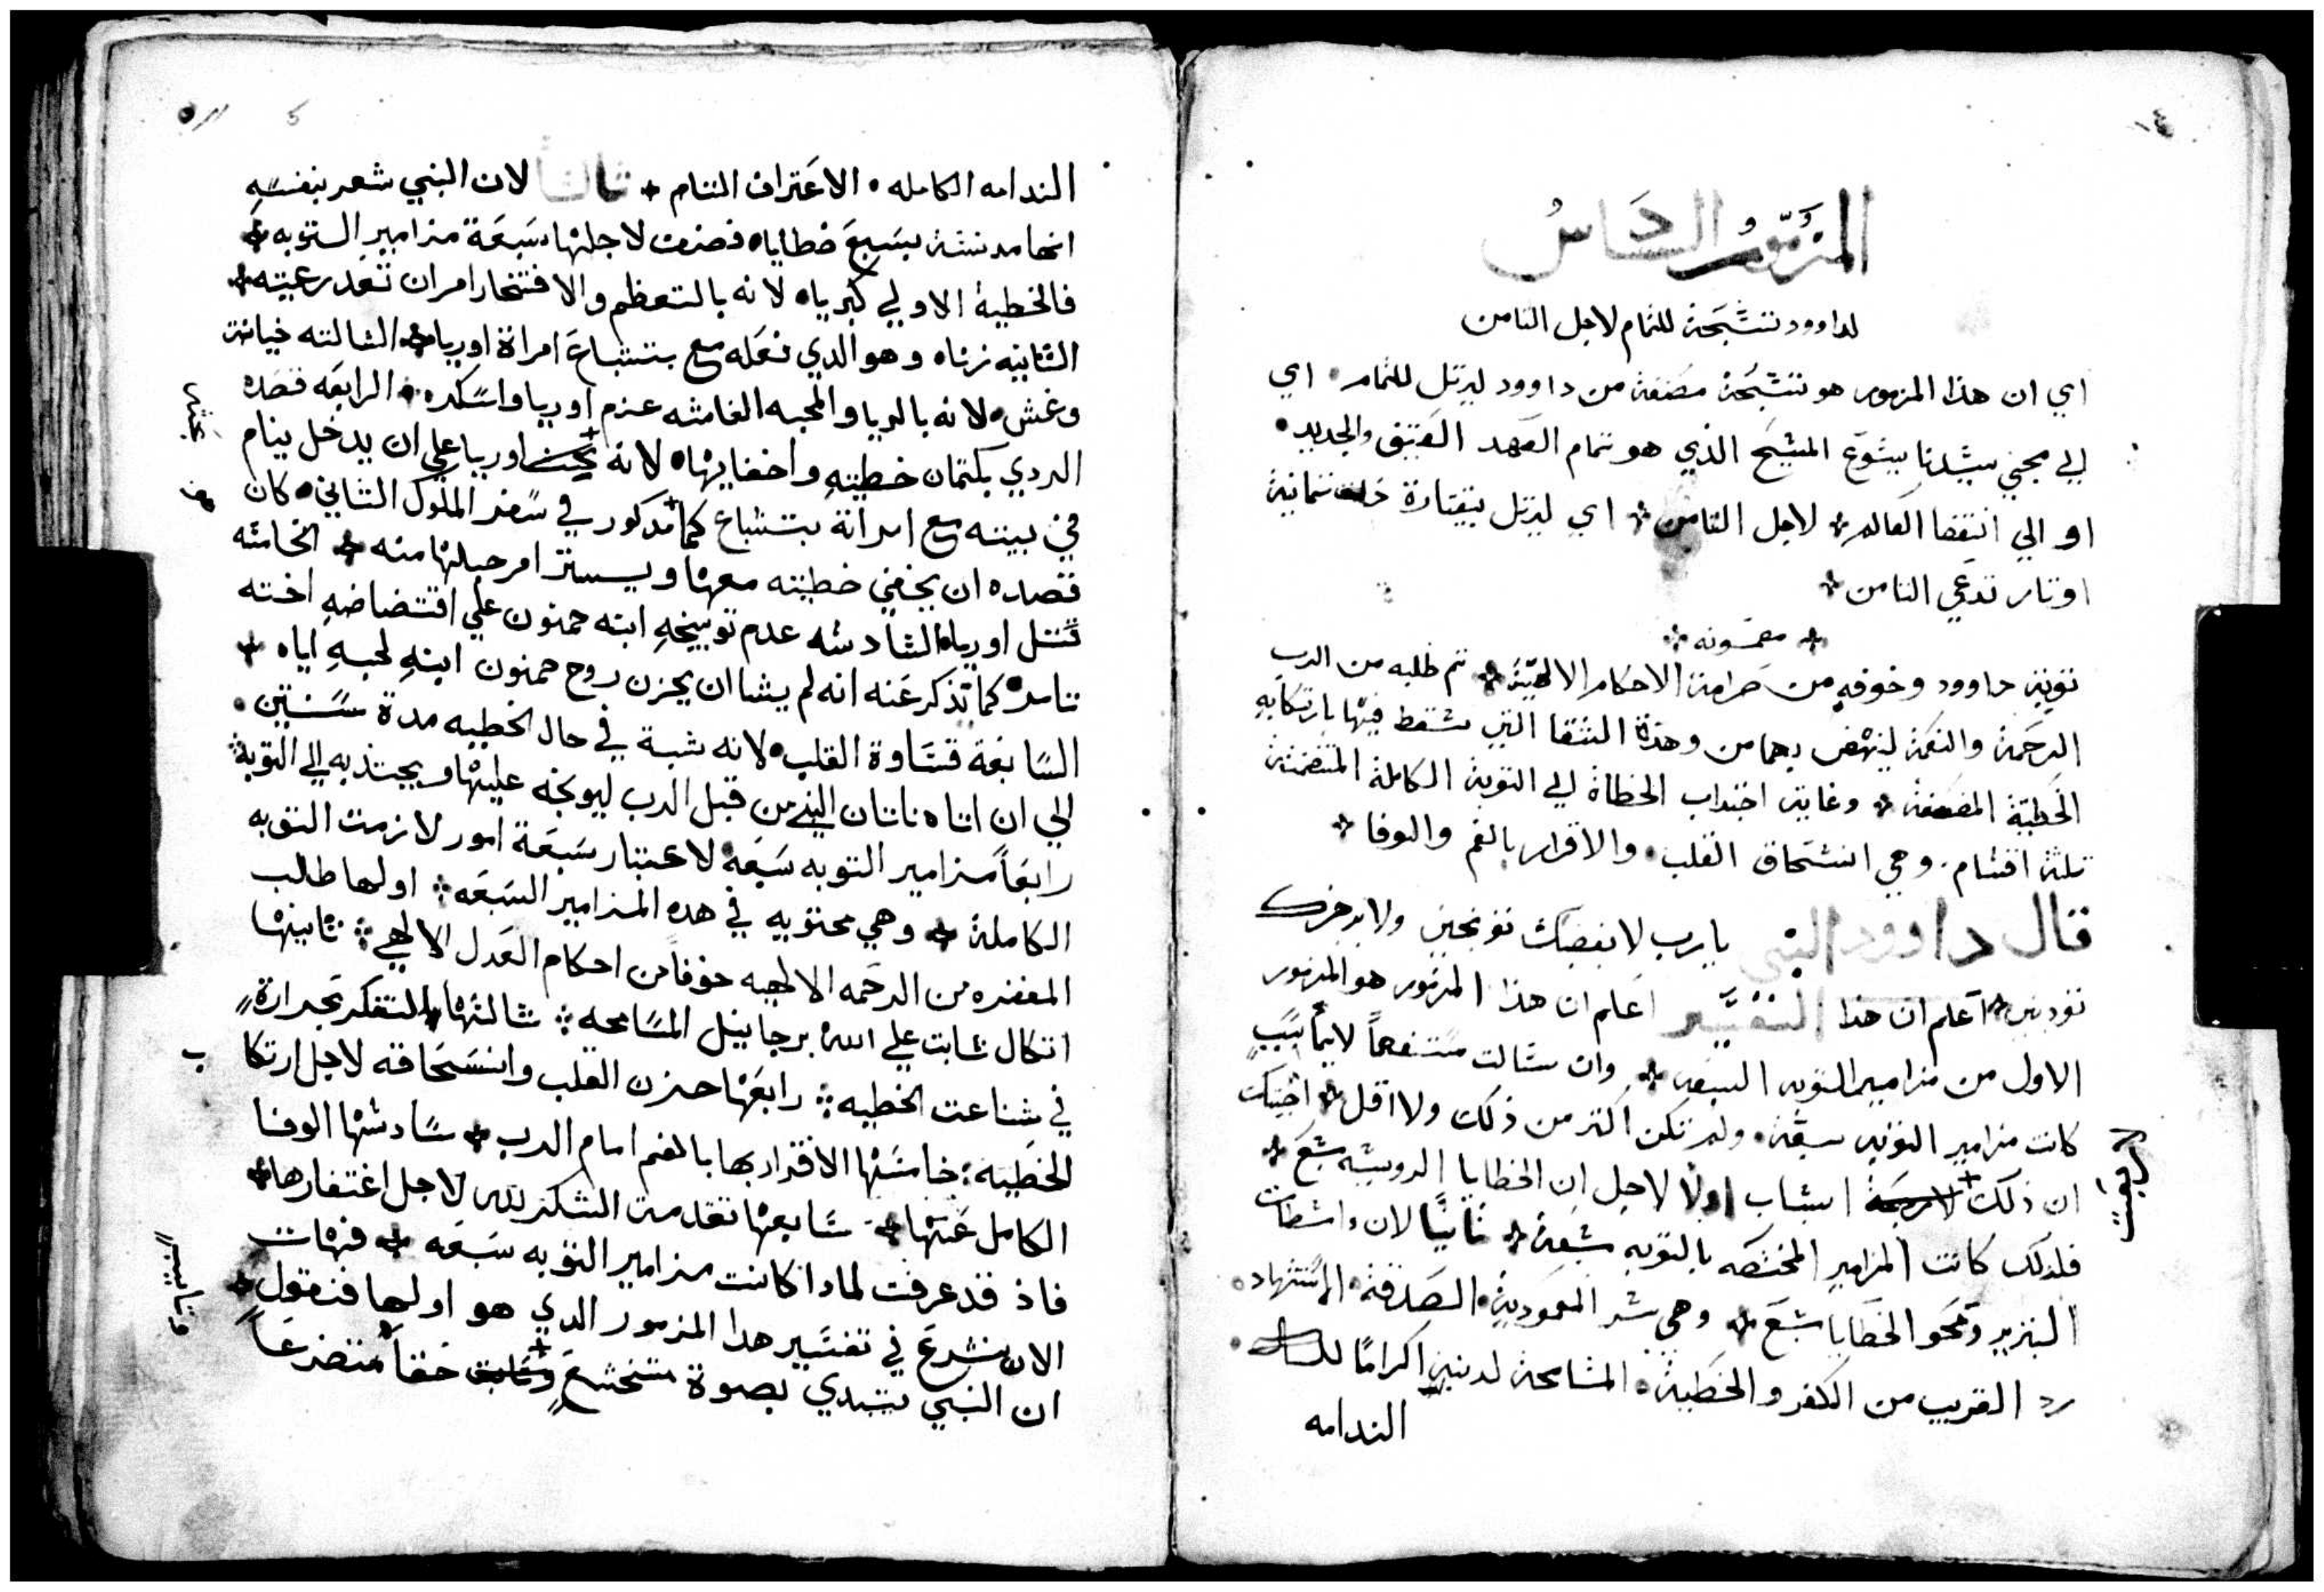 المزمور السادس
لداوود تسبحة للتمام لاجل التامن
اي ان هذا المزمور هو تسبحة مصنفة من داوود ليرتل للتمام • اي
الي مجي سيدنا يسوع المسيح الذي هو تمام العهد العتيق والجديد •
او الي انتقضا العالم لاجل التامن اي ليرتل بقيتارة ذات تمانية
اوتار تدعي التامن
مضمونه
توبة داوود وخوفه من صرامة الاحكام الالهية تم طلبه من الرب
الرحمة والنعمة لينهض بهما من وهدة الشقا التي سقط فيها بارتكابه
الخطية المضعفة وغايته اجتداب الخطاة الي التوبة الكاملة المتضمنة
تلتة اقسام • وهي انسحاق القلب • والاقرار بالفم والوفا
قال داوود النبي يارب لا بغضبك توبخني ولا برجزك
تودبني اعلم ان هذا التفسير اعلم ان هذا المزمور هو المزمور
الاول من مزامير التوبه السبعه وان سالت مستفهماً لايما سبب
كانت مزامير التوبه سبعة • ولم تكن اكتر من ذلك ولا اقل اجبتك
ان ذلك لاربعة اسباب اولا لاجل ان الخطايا الروسيه سبع
فلذلك كانت المزامير المختصه بالتوبه سبعة ثانيا لان واسطات
التبرير ومحو الخطايا سبع وهي سر المعمودية • الصدقة • الاستشهاد •
رد القريب من الكفر والخطية • المسامحة لمدنبين اكراماً لله •
الندامه
الندامه الكامله • الاعتراف التام ثالثاً لان النبي شعر بنفسه
انها مدنسة بسبع خطايا • فصنف لاجلها سبعة مزامير التوبه
فالخطية الاولي كبرياه لانه بالتعظم والافتخار امر ان تعد رعيته
الثانيه زناه وهو الدي فعله مع بتشباع امراة اوريا الثالثه خيانته
وغشه لانه بالريا والمحبه الغاشه عزم اوريا واسكره • الرابعه قصده
الردي بكتمان خطيته واخفايها • لانه اوريا علي ان يدخل ينام
في بيته مع امراته بتشباع كما مدكور في سفر الملوك الثاني • كان
قصده ان يخفي خطيته معها ويستر امر حبلها منه الخامسه
قتل اوريا السادسه عدم توبيخه ابنه حمنون علي افتضاضه اخته
تامر • كما تذكر عنه انه لم يشا ان يحزن روح حمنون ابنه لحبه اياه
السابعة قساوة القلب • لانه ثبت في حال الخطيه مدة سنتين •
الي ان اتاه ناتان النبي من قبل الرب ليوبخه عليها ويجتدبه الي التوبة
رابعاً مزامير التوبه سبعه لاعتبار سبعة امور لازمت التوبه
الكاملة وهي محتويه في هده المزامير السبعه اولها طالب
المغفره من الرحمه الالهيه خوفاً من احكام العدل الالهي ثانيها
اتكال ثابت علي الله برجا نيل المسامحه ثالثها التفكر بحرارة
في شناعت الخطيه رابعها حزن القلب وانسحاقه لاجل ارتكا ب
الخطيه خامسها الاقرار بها بالفم امام الرب سادسها الوفا
الكامل عنها سابعها تقدمت الشكر لله لاجل اغتفارها
فاذ قد عرفت لمادا كانت مزامير التوبه سبعه فهات
الان نشرع في تفسير هدا المزمور الدي هو اولها فنقول
ان النبي يبتدي بصوة متخشع حقاً متضرعاً